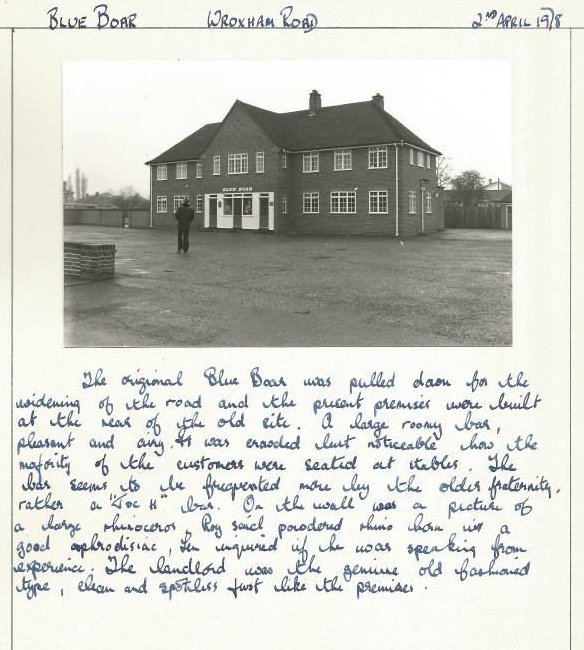 BLUE BOAR (WROXHAM ROAD) 2ND APRIL 1978
BLUE BOAR
The origional Blue Boar was pulled down for the
widening of the road and the present premises were built
at the rear of the old site. A large roomy bar,
pleasant and airy. It was crowded but noticeable how the
majority of the customers were seated at tables. The
bar seems to be frequented more by the older fraternity,
rather a "Toc H" bar. On the wall was a picture of
a large rhinoceros. Roy said powdered rhino horn is a
good aphrodisiac, Len inquired if he was speaking from
experience. The landlord was the genuine old fashioned
type, clean and spotless just like the premises.